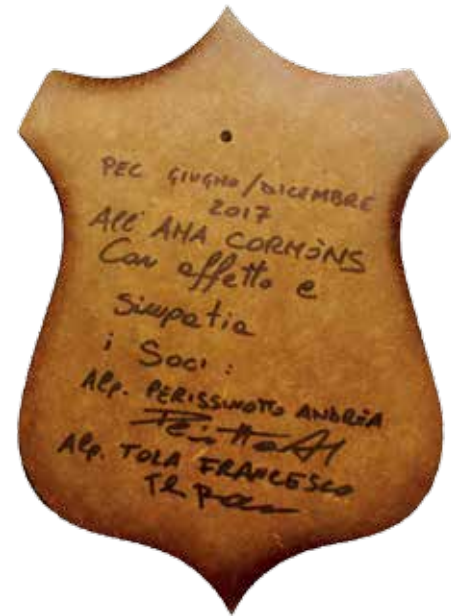 PEC GIUGNO/DICEMBRE
2017
All' ANA CORMÒNS
Con affetto e
Simpatia
i Soci:
Alp. PERISSINOTTO ANDREA
Alp. TOLA FRANCESCO